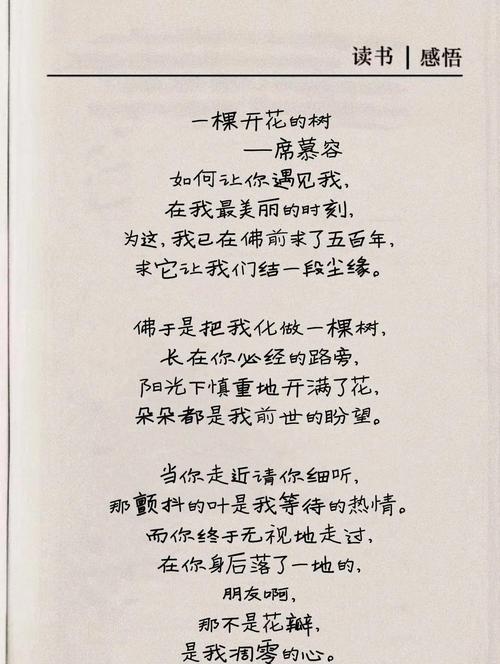 读书 | 感悟
一棵开花的树
——席慕容
如何让你遇见我,
在我最美丽的时刻,
为这,我已在佛前求了五百年,
求它让我们结一段尘缘。
佛于是把我化做一棵树,
长在你必经的路旁,
阳光下慎重地开满了花,
朵朵都是我前世的盼望。
当你走近请你细听,
那颤抖的叶是我等待的热情。
而你终于无视地走过,
在你身后落了一地的,
朋友啊,
那不是花瓣,
是我凋零的心。